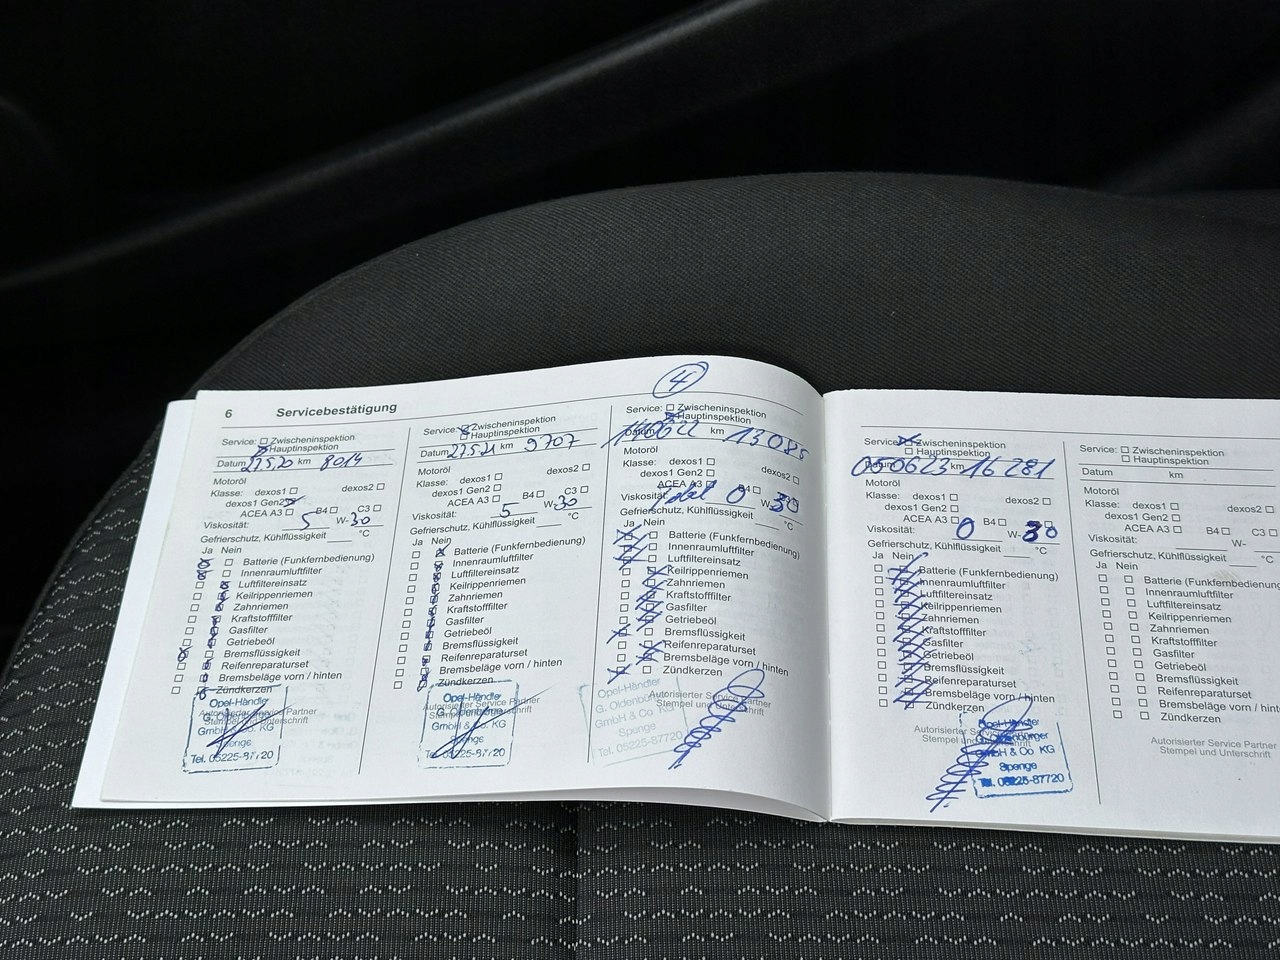 6 Servicebestätigung
Service: Zwischeninspektion
Hauptinspektion
Datum 27.5.20 km 8014
Motoröl
Klasse: dexos1 dexos2
dexos1 Gen2
ACEA A3 B4 C3
Viskosität: 5 W-30
Gefrierschutz, Kühlflüssigkeit °C
Ja Nein
Batterie (Funkfernbedienung)
Innenraumluftfilter
Luftfiltereinsatz
Keilrippenriemen
Zahnriemen
Kraftstofffilter
Gasfilter
Getriebeöl
Bremsflüssigkeit
Reifenreparaturset
Bremsbeläge vorn / hinten
Zündkerzen
Autorisierter Service Partner
Stempel und Unterschrift
Opel-Händler
G. Oldenbürger
GmbH & Co. KG
Spenge
Tel. 05225-87720
Service: Zwischeninspektion
Hauptinspektion
Datum 27.5.21 km 9707
Motoröl
Klasse: dexos1 dexos2
dexos1 Gen2
ACEA A3 B4 C3
Viskosität: 5 W-30
Gefrierschutz, Kühlflüssigkeit °C
Ja Nein
Batterie (Funkfernbedienung)
Innenraumluftfilter
Luftfiltereinsatz
Keilrippenriemen
Zahnriemen
Kraftstofffilter
Gasfilter
Getriebeöl
Bremsflüssigkeit
Reifenreparaturset
Bremsbeläge vorn / hinten
Zündkerzen
Autorisierter Service Partner
Stempel und Unterschrift
Opel-Händler
G. Oldenbürger
GmbH & Co. KG
Spenge
Tel. 05225-87720
4
Service: Zwischeninspektion
Hauptinspektion
Datum km 13085
Motoröl
Klasse: dexos1 dexos2
dexos1 Gen2
ACEA A3 B4 C3
Viskosität: 0 W-30
Gefrierschutz, Kühlflüssigkeit °C
Ja Nein
Batterie (Funkfernbedienung)
Innenraumluftfilter
Luftfiltereinsatz
Keilrippenriemen
Zahnriemen
Kraftstofffilter
Gasfilter
Getriebeöl
Bremsflüssigkeit
Reifenreparaturset
Bremsbeläge vorn / hinten
Zündkerzen
Autorisierter Service Partner
Stempel und Unterschrift
Opel-Händler
G. Oldenbürger
GmbH & Co. KG
Spenge
Tel. 05225-87720
Service: Zwischeninspektion
Hauptinspektion
Datum 050623 km 16281
Motoröl
Klasse: dexos1 dexos2
dexos1 Gen2
ACEA A3 B4 C3
Viskosität: 0 W-30
Gefrierschutz, Kühlflüssigkeit °C
Ja Nein
Batterie (Funkfernbedienung)
Innenraumluftfilter
Luftfiltereinsatz
Keilrippenriemen
Zahnriemen
Kraftstofffilter
Gasfilter
Getriebeöl
Bremsflüssigkeit
Reifenreparaturset
Bremsbeläge vorn / hinten
Zündkerzen
Autorisierter Service Partner
Stempel und Unterschrift
Opel-Händler
G. Oldenbürger
GmbH & Co. KG
Spenge
Tel. 05225-87720
Service: Zwischeninspektion
Hauptinspektion
Datum km
Motoröl
Klasse: dexos1 dexos2
dexos1 Gen2
ACEA A3 B4 C3
Viskosität: W-
Gefrierschutz, Kühlflüssigkeit °C
Ja Nein
Batterie (Funkfernbedienung
Innenraumluftfilter
Luftfiltereinsatz
Keilrippenriemen
Zahnriemen
Kraftstofffilter
Gasfilter
Getriebeöl
Bremsflüssigkeit
Reifenreparaturset
Bremsbeläge vorn / hint
Zündkerzen
Autorisierter Service Partner
Stempel und Unterschrift